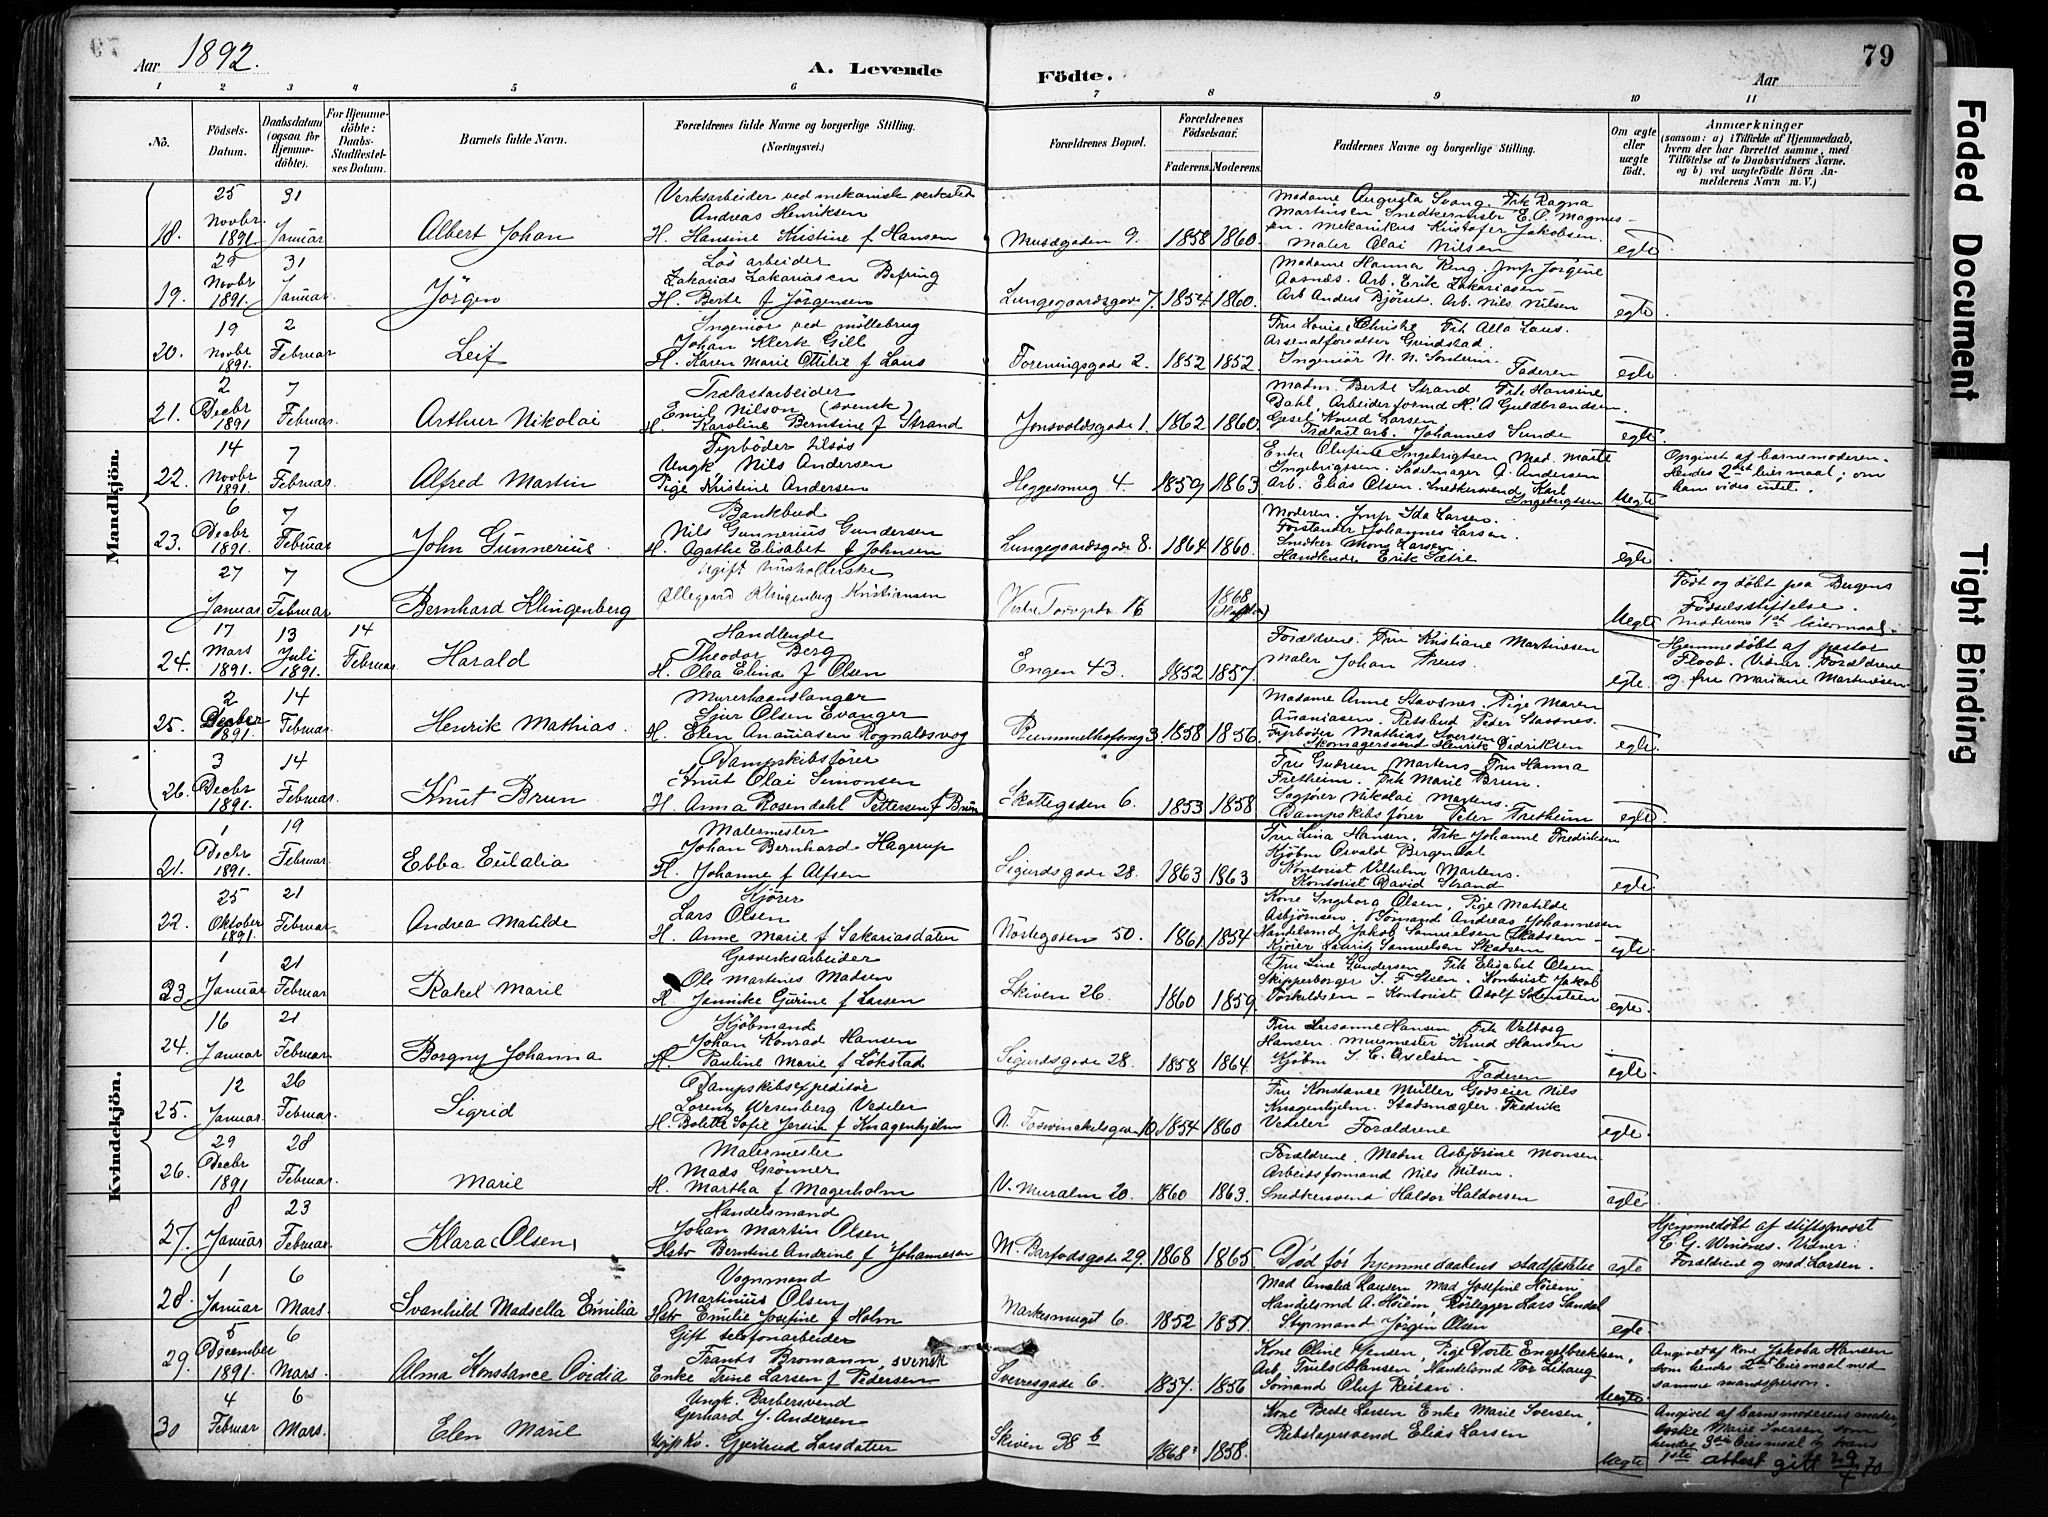 79
Aar 1892.
A. Levende
Födte.
Aar
1 2 3 4 5 6 7 8 9 10 11
No.
Födsels-
Datum.
Daabsdatum
(ogsaa for
Hjemme-
döbte).
For Hjemme-
döbte:
Daabs-
Stadfæstel-
ses Datum.
Barnets fulde Navn.
Forældrenes fulde Navne og borgerlige Stilling.
(Næringsvei.)
Forældrenes Bopæl.
Forældrenes
Födselsaar.
Faderens. Moderens.
Faddernes Navne og borgerlige Stilling.
Om ægte
eller
uægte
födt.
Anmærkninger
(saasom: a) i Tilfælde af Hjemmedaab,
hvem der har forrettet samme, med
Tilföielse af to Daabsvidners Navne.
og b) ved uægtefödte Börn An-
melderens Navn m. V.)
Mandkjön.
18.
25 Novbr 1891.
31 Januar
Albert Johan
Verksarbeider ved mekanisk verksted
Andreas Henriksen
H. Hansine Kristine f Hansen
Musegaden 9.
1858 1860.
Madame Augusta Svang. Frk Ragna
Martinsen Snedkermester E. P. Magnus-
en. Mekanikus Kristofer Jakobsen.
Maler Olai Nilsen
egte
19.
29 Novbr 1891.
31 Januar
Jörgen
Lös arbeider
Zakarias Zakariasen Befring
H. Berte f Jørgensen
Lungegaardsgade 7.
1854 1860.
Madame Hanna Reng. Jmf Jørgine
Aasnæs. Arb. Erik Zakariasen
Arb Anders Bjørset. Arb. Nils Nilsen
egte
20.
19 Novbr 1891.
2 Februar
Leif
Ingeniør ved møllebrug
Johan Klerk Gill
H. Karen Marie Ottilie f Laus
Foreningsgade 2.
1852 1852.
Fru Louise Christie Frk Alla Laus.
Arsenalforvalter Grindstad.
Ingeniør N. N. Sontum. Faderen
egte
21.
2 Decbr 1891
7 Februar
Arthur Nikolai
Trælastarbeider
Emil Nilson (svensk)
H. Karoline Berntine f Strand
Jonsvoldsgade 1.
1862 1860.
Madm. Berte Strand Frk Hansine
Dahl. Arbeiderformd H. A Guldbrandsen.
Gesel Knud Larsen
Trælastarb. Johannes Sunde
egte
22.
14 Novbr 1891.
7 Februar
Alfred Martin
Fyrbøder tilsøs
Ungk Nils Andersen
Pige Kristine Andersen
Heggesmug 4.
1859 1863.
Enke Olufine Ingebrigtsen Mad. Marte
Ingebrigtsen. Sadelmager A. Andersen
Arb. Elias Olsen. Snedkersvend Karl
Ingebrigtsen
Uegte
Opgivet af barnemoderen.
Hendes 2det leiermaal; om
ham vides intet.
23.
6 Decbr 1891
7 Februar
John Gunnerius
Bankbud
Nils Gunnerius Gundersen
H. Agathe Elisabet f Johnsen
Lungegaardsgade 8.
1864 1860.
Moderen. Jmp Ida Larsen.
Forstander Johannes Larsen.
Snedker Mons Larsen
Handlende Erik Sætre
egte
27 Januar
7 Februar
Bernhard Klingenberg
Ugift husholderske
Øllegaard Klingenberg Kristiansen
Vestre Torvgade 16
1868
Uegte
Født og døbt paa Bergens
Fødselsstiftelse.
Moderens 1st leiermaal.
24.
17 Mars 1891.
13 Juli 1891.
14 Februar.
Harald
Handlende
Theodor Berg
H. Olea Elina f Olsen
Engen 43.
1852 1857.
Forældrene. Fru Kristiane Martinsen
Maler Johan Preus.
egte.
Hjemmedøbt af pastor
Flood. Vidner. Forældrene
og fru Mariane Martinsen.
25.
2 Decber 1891.
14 Februar
Henrik Mathias.
Murerhaandlanger
Sjur Olsen Evanger
H. Elen Ananiasen Rognaldsvog
Rummelhofsveg 3.
1858 1856.
Madame Anne Stavsnes. Pige Maren
Ananiasen. Retsbud Peder Stavsnes.
Fyrbøder Mathias Iversen
Skomagersvend Henrik Didriksen
egte.
26.
3 Decbr 1891.
14 Februar.
Knut Brun
Dampskibsfører
Knut Olai Simonsen
H. Anna Rosendahl Pettersen f Brun
Skottegaden 6.
1853 1858
Fru Gudrun Martens Fru Hanna
Fretheim. Frk Marie Brun.
Sagfører Nikolai Martens.
Dampskibsfører Peter Fretheim
egte.
Kvindekjön.
21.
1 Decbr 1891.
19 Februar.
Ebba Eulalia
Malermester
Johan Bernhard Hagerup
H. Johanne f Alfsen
Sigurdsgade 28.
1863 1863
Fru Lina Hansen. Frk Johanne Fredriksen
Kjøbm Osvald Bergendal
Kontorist Vilhelm Martens.
Kontorist David Strand
egte
22.
25 Oktober 1891.
21 Februar.
Andrea Matilde
Kjører
Lars Olsen
H. Anne Marie f Sakariasdatter
Nøstegaden 50.
1861 1854
Kone Ingeborg Olsen, Pige Matilde
Asbjørnsen. Sømand Andreas Johannesen
Handelsmd Jakob Samuelsen Skadsem-
Kjører Lauritz Samuelsen Skadsem
egte.
23
1 Januar
21 Februar
Rakel Marie
Gasverksarbeider
Ole Martinus Madsen
H. Jannike Gurine f Larsen
Skiven 26.
1860 1859.
Fru Line Gundersen Frk Elisabet Olsen
Skipperborger S. F. Steen. Kontorist Jakob
Torkildsen - Kontorist Adolf
egte.
24.
16 Januar
21 Februar
Borgny Johanna
Kjøbmand
Johan Konrad Hansen
H. Pauline Marie f Løkstad
Sigurdsgade 28.
1858 1864.
Fru Susanne Hansen, Frk Valborg
Hansen. Murmester Knud Hansen
Kjøbm S. C. Axelsen - Faderen
egte.
25.
12 Januar.
26 Februar.
Sigrid
Dampskibsexpeditør
Lorentz Wesenberg Vedeler
H. Bolette Sofie Jersin f Knagenhjelm
N. Foswinckelsgade 10
1854 1860
Fru Konstance Müller Godseier Nils
Knagenhjelm. Stadsmægler. Fredrik
Vedeler Forældrene
egte.
26.
29 Decbr 1891
28 Februar.
Marie
Malermester
Mads Grønner
H. Martha f Magerholm
V. Muralm 20.
1860 1863.
Forældrene. Madm Asbjørine Monsen
Arbeidsformand Nils Nilsen.
Snedkersvend Haldor Haldorsen
egte
27.
8 Januar
23 Februar.
Klara (Olsen)
Handelsmand
Johan Martin Olsen
Hstr Berntine Andrine f Johannesen
M. Barfodsgade 29.
1868 1865.
Død før hjemmedaabens stadfæstelse
egte
Hjemmedøbt af stiftsprovst
E. G. Windnes. Vidner:
Forældrene og mad Larsen.
28.
1 Januar
6 Mars
Svanhild Madsella Emilia
Vognmand
Martinius Olsen
Hstr Emilie Josefine f Holm
Markesmuget 6.
1852 1851.
Mad Amalia Larsen Mad Josefine Høiem
Handelsmd A. Høiem, Rørlegger Lars Sandal
Styrmand Jörgen Olsen
egte
29.
5 December 1891.
6 Mars.
Alma Konstance Ovidia
Gift telefonarbeider
Frants Bromann, svensk
Enke Trine Larsen f Pedersen
Sverresgade 6.
1857. 1856
Kone Oline Jensen, Pige Dorte Engelbrektsen,
Arb. Truls Hansen, Handelsmd Tor Lihaug
Sømand Oluf Reisen.
Uegte
Angivet af Kone Jakoba Hansen
som hendes 2det leiermaal med
samme mandsperson.
30
4 Februar
6 Mars.
Elen Marie
Ungk. Barbersvend
Gerhard J. Andersen
Ugift Ko. Gjertrud Larsdatter
Skiven 38 b
1868 1858.
Kone Berte Larsen Enke Marie Iversen,
Rebslagersvend Elias Larsen
Uegte
Angivet af barnemoderens moder,
enke Marie Iversen som
hendes 3die leiermaal og hans
1ste attest gitt 29/4 70
Faded Document
Tight Binding